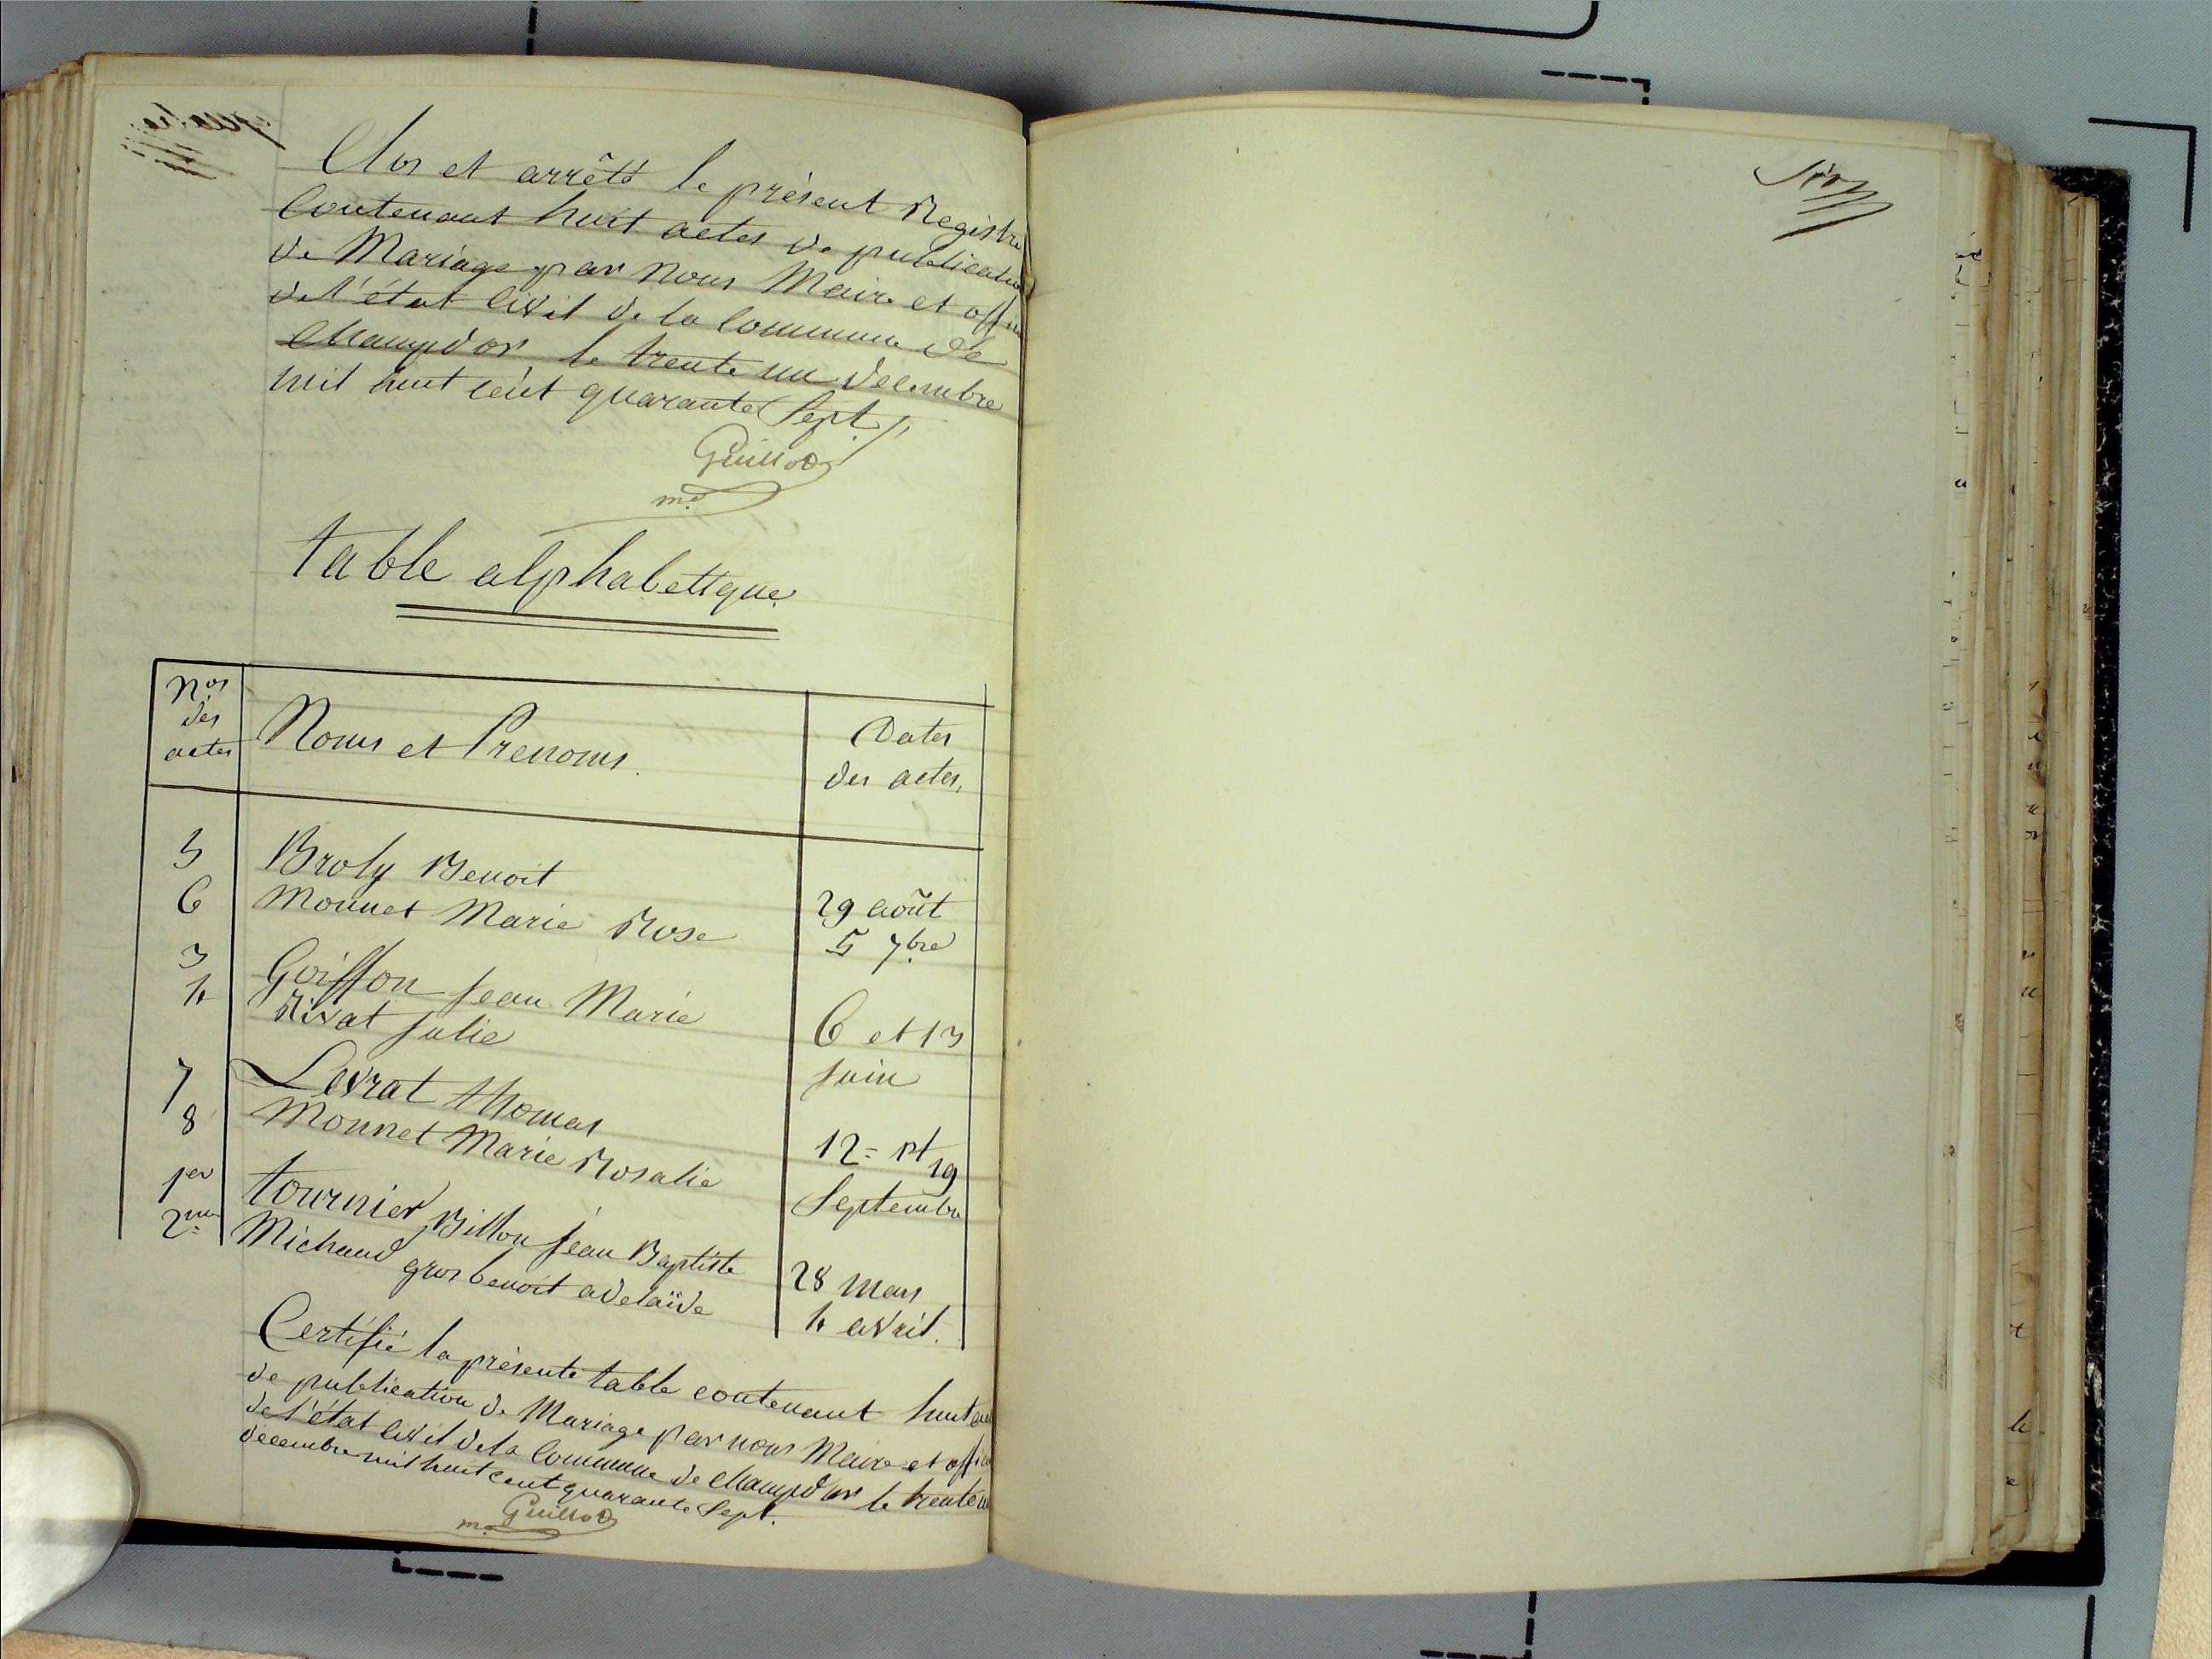 Clos et arrêté le présent Registre
Contenant huit actes de publication
de Mariage par nous Maire et offi
de l'état civil de la Commune de
Champdor le trente un decembre
mil huit cent quarante Sept
Guillot
m.e
table alphabetique
Nos des actes
Noms et Prenoms.
Dates des actes.
5 Broly Benoit 29 août
6 Monnet Marie Rose 5 7bre
3 Goiffon Jean Marie 6 et 13
4 Rivat Julie Juin
7 Levrat thomas 12 = et 19
8 Monnet Marie Rosalie Septembre
1er tournier Billon Jean Baptiste 28 Mars
2me Michaud gros benoit adelaïde 4 avril.
Certifié la présente table contenant huit
de publication de Mariage par nous Maire et offi
de l'état civil de la Commune de Champdor le trente un
decembre mil huit cent quarante Sept.
Guillot
m.e